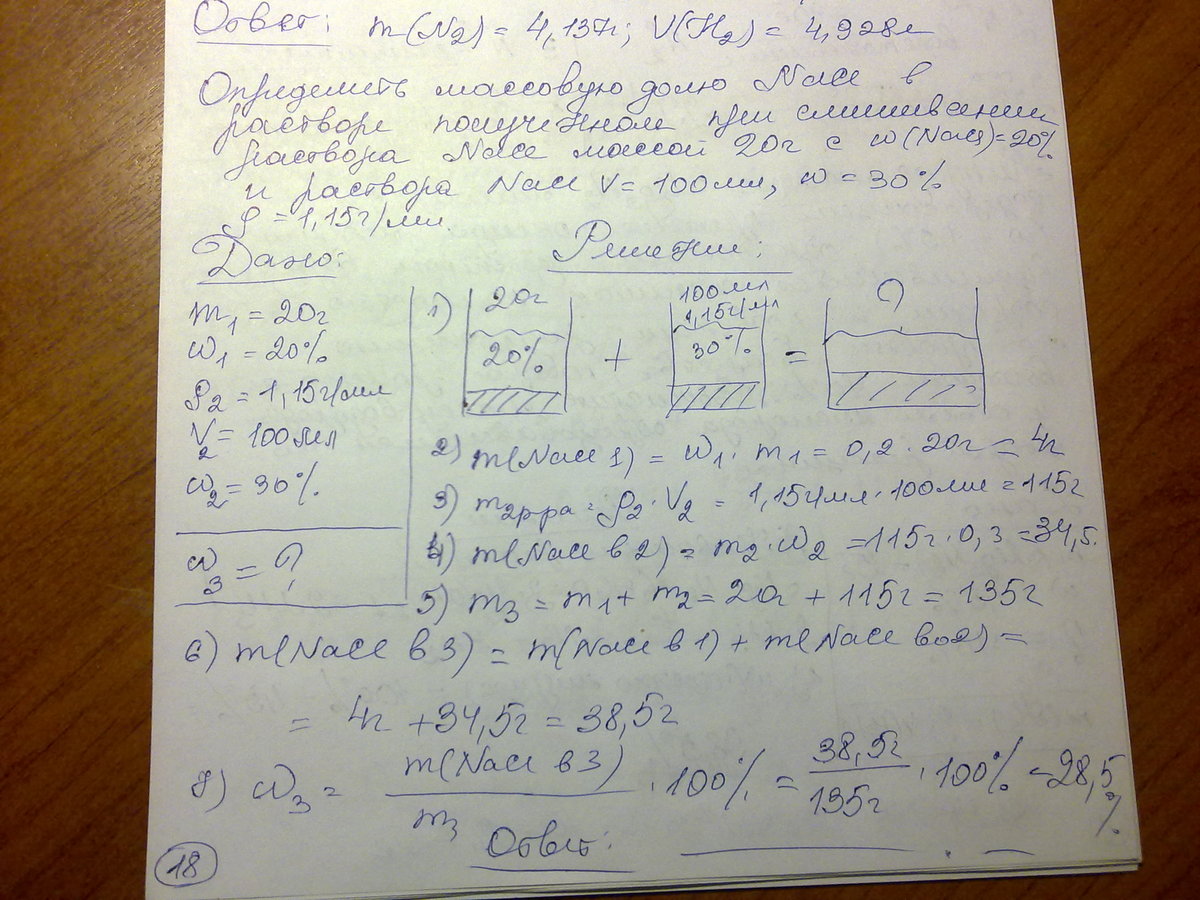 Ответ: m(N2) = 4,137г; V(H2) = 4,928л
Определить массовую долю NaCl в
растворе полученном при смешивении
раствора NaCl массой 20г с w(NaCl)=20%
и раствора NaCl V = 100мл, w = 30%
ρ = 1,15г/мл.
Дано: Решение:
m1 = 20г
w1 = 20%
ρ2 = 1,15г/мл
V2 = 100мл
w2 = 30%.
w3 = ?
1) 20г 20% + 100мл 1,15г/мл 30% = ?
2) m(NaCl 1) = w1 · m1 = 0,2 · 20г = 4г
3) m2р-ра = ρ2 · V2 = 1,15г/мл · 100мл = 115г
4) m(NaCl в 2) = m2 · w2 = 115г · 0,3 = 34,5.
5) m3 = m1 + m2 = 20г + 115г = 135г
6) m(NaCl в 3) = m(NaCl в 1) + m(NaCl во2) =
= 4г + 34,5г = 38,5г
7) w3 = m(NaCl в 3) / m3 · 100% = 38,5г / 135г · 100% = 28,5%
Ответ:
18